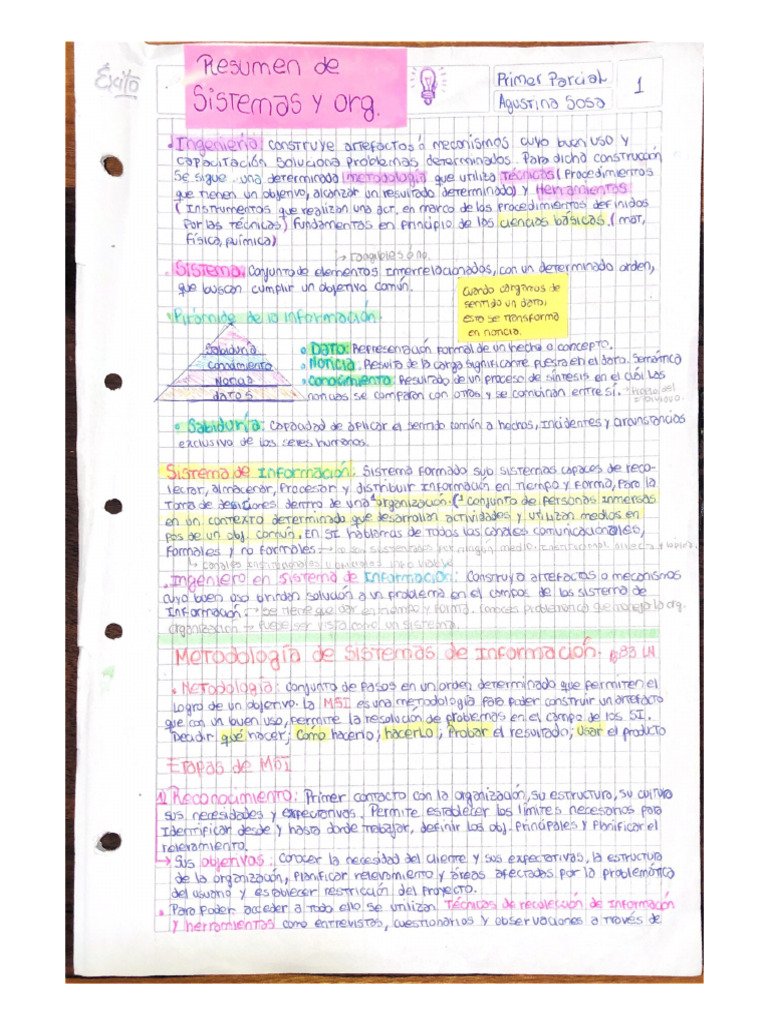 Éxito
Resumen de
Sistemas y org.
Primer Parcial
Agustina Sosa
1
• Ingeniería: construye artefactos ó mecanismos cuyo buen uso y
capacitación soluciona problemas determinados. Para dicha construcción
se sigue una determinada metodología que utiliza técnicas (Procedimientos
que tienen un objetivo, alcanzar un resultado determinado) y Herramientas
(Instrumentos que realizan una act. en marco de los procedimientos definidos
por las técnicas) fundamentos en principio de las ciencias básicas. (mat,
física, química)
↳ tangibles ó no.
• Sistema: Conjunto de elementos interrelacionados, con un determinado orden,
que buscan cumplir un objetivo común.
cuando cargamos de
sentido un dato,
esto se transforma
en noticia.
• Pirámide de la información.
Sabiduría
Conocimiento
Noticia
datos
• Dato: Representación formal de un hecho o concepto.
• Noticia: Resulta de la carga significante puesta en el dato. Semántica
• Conocimiento: Resultado de un proceso de síntesis en el cuál las
noticias se comparan con otras y se combinan entre sí.
• Sabiduría: capacidad de aplicar el sentido común a hechos, incidentes y circunstancias
exclusivo de los seres humanos.
Sistema de Información: Sistema formado sub sistemas capaces de reco-
lectar, almacenar, Procesar y distribuir Información en tiempo y forma, para la
toma de desiciones dentro de una organización (conjunto de personas inmersas
en un contexto determinado que desarrollan actividades y utilizan medios en
pos de un obj. común. En SI hablamos de todos los canales comunicacionales,
Formales y no formales
• Ingeniero en Sistema de Información: Construya artefactos o mecanismos
cuyo buen uso brindan solución a un problema en el campos de los sistema de
Información → se tiene que dar en tiempo y forma. Conocer problemática que maneja la org.
organización → Puede ser vista como un sistema.
Metodología de Sistemas de Información. Pg 33 LN
• Metodología: conjunto de pasos en un orden determinado que permiten el
logro de un objetivo. la MSI es una metodología para poder construir un artefacto
que con un buen uso, permite la resolución de problemas en el campo de los SI.
Decidir qué hacer; Cómo hacerlo; hacerlo; Probar el resultado; Usar el producto
Etapas de MSI
1) Reconocimiento: Primer contacto con la organización, su estructura, su cultura
sus necesidades y expectativas. Permite establecer los límites necesarios para
identificar desde y hasta donde trabajar, definir los obj. principales y Planificar el
relevamiento.
→ Sus objetivos: Conocer la necesidad del cliente y sus expectativas, la estructura
de la organización, planificar relevamiento y áreas afectadas por la problemática
del usuario y establecer restricción del Proyecto.
• Para Poder acceder a todo ello se utilizan Técnicas de recolección de información
y herramientas como entrevistas, cuestionarios y observaciones a través de